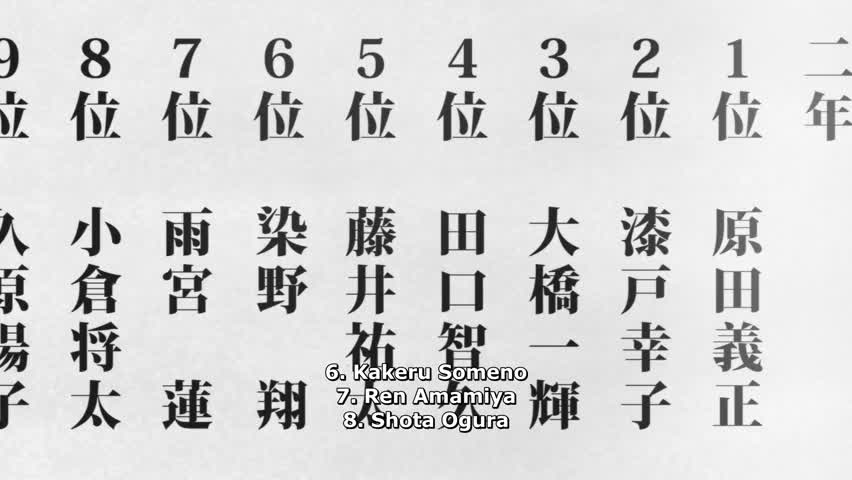 二年
1位 原田義正
2位 漆戸幸子
3位 大橋一輝
4位 田口智久
5位 藤井祐
6位 染野 翔
7位 雨宮 蓮
8位 小倉将太
9位 久原陽子
6. Kakeru Someno
7. Ren Amamiya
8. Shota Ogura